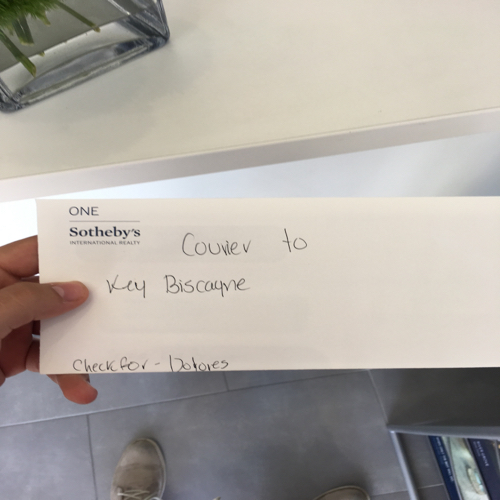 ONE
Sotheby's
INTERNATIONAL REALTY
Courier to
Key Biscayne
Check for - Dolores